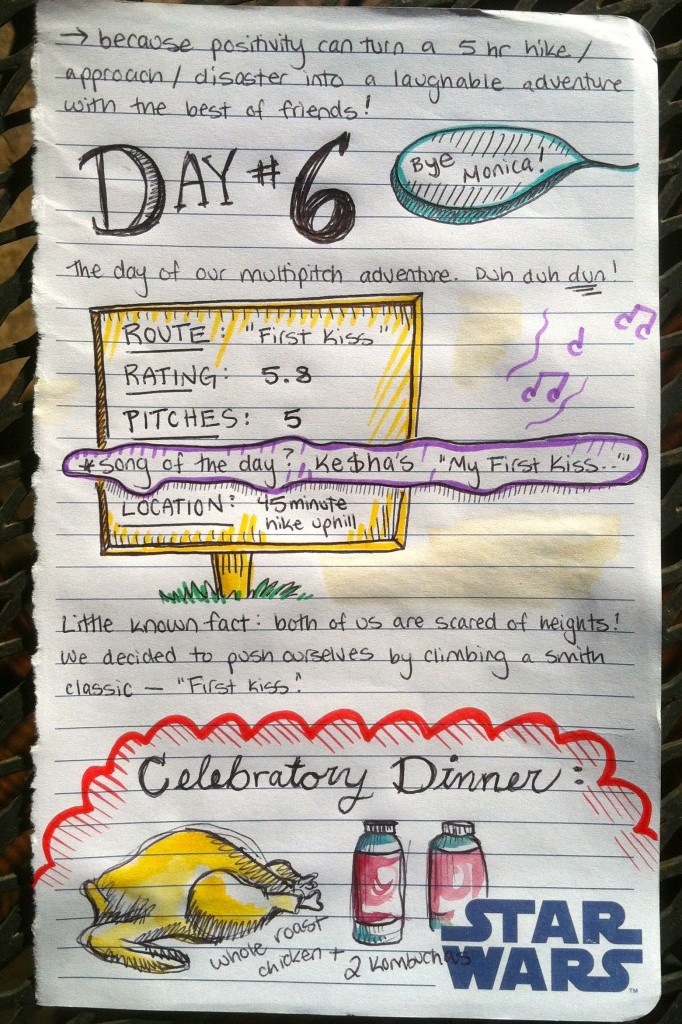 → because positivity can turn a 5 hr hike/
approach/disaster into a laughable adventure
with the best of friends!
DAY #6
Bye
Monica!
The day of our multipitch adventure. Duh duh dun!
ROUTE: "First Kiss"
RATING: 5.8
PITCHES: 5
*song of the day? Ke$ha's "My First Kiss..."
LOCATION: 45 minute
hike uphill
Little known fact: both of us are scared of heights!
We decided to push ourselves by climbing a smith
classic — "First Kiss".
Celebratory Dinner:
whole roast
chicken + 2 Kombuchas
STAR
WARS
TM